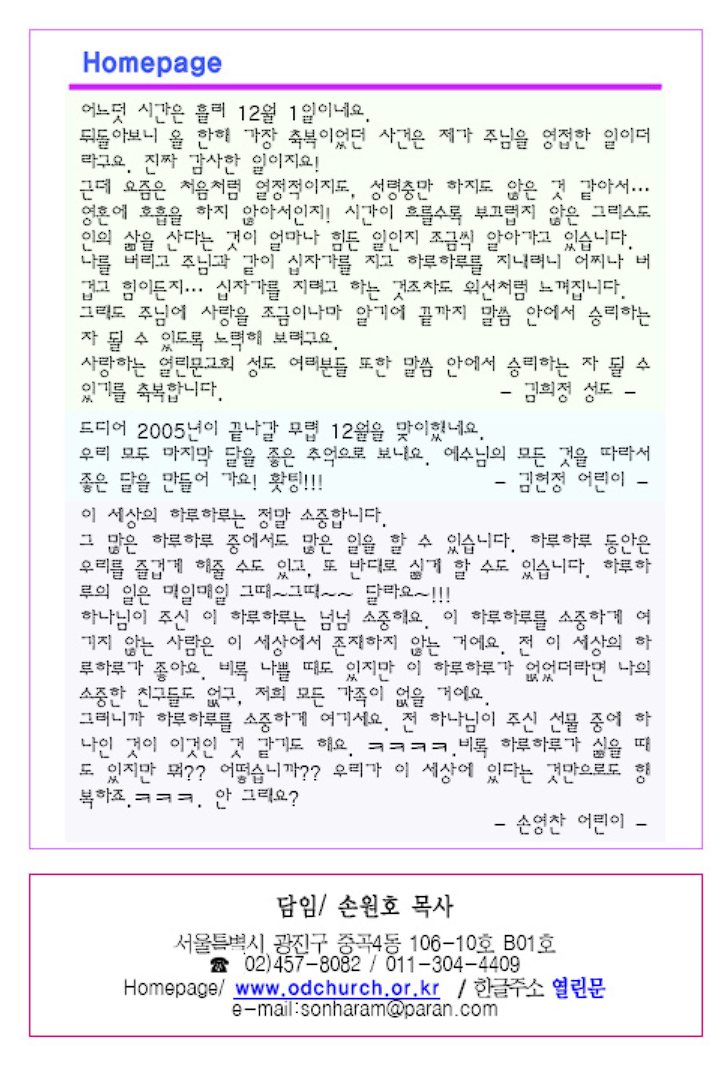 Homepage
어느덧 시간은 흘러 12월 1일이네요.
뒤돌아보니 올 한해 가장 축복이었던 사건은 제가 주님을 영접한 일이더
라구요. 진짜 감사한 일이지요!
근데 요즘은 처음처럼 열정적이지도, 성령충만 하지도 않은 것 같아서…
영혼에 호흡을 하지 않아서인지! 시간이 흐를수록 부끄럽지 않은 그리스도
인의 삶을 산다는 것이 얼마나 힘든 일인지 조금씩 알아가고 있습니다.
나를 버리고 주님과 같이 십자가를 지고 하루하루를 지내려니 어찌나 버
겁고 힘이든지… 십자가를 지려고 하는 것조차도 위선처럼 느껴집니다.
그래도 주님에 사랑을 조금이나마 알기에 끝까지 말씀 안에서 승리하는
자 될 수 있도록 노력해 보려구요.
사랑하는 열린문교회 성도 여러분들 또한 말씀 안에서 승리하는 자 될 수
있기를 축복합니다. - 김희정 성도 -
드디어 2005년이 끝나갈 무렵 12월을 맞이했네요.
우리 모두 마지막 달을 좋은 추억으로 보내요. 예수님의 모든 것을 따라서
좋은 달을 만들어 가요! 홧팅!!! - 김현정 어린이 -
이 세상의 하루하루는 정말 소중합니다.
그 많은 하루하루 중에서도 많은 일을 할 수 있습니다. 하루하루 동안은
우리를 즐겁게 해줄 수도 있고, 또 반대로 싫게 할 수도 있습니다. 하루하
루의 일은 매일매일 그때~그때~~ 달라요~!!!
하나님이 주신 이 하루하루는 넘넘 소중해요. 이 하루하루를 소중하게 여
기지 않는 사람은 이 세상에서 존재하지 않는 거에요. 전 이 세상의 하
루하루가 좋아요. 비록 나쁠 때도 있지만 이 하루하루가 없었더라면 나의
소중한 친구들도 없구, 저희 모든 가족이 없을 거에요.
그러니까 하루하루를 소중하게 여기세요. 전 하나님이 주신 선물 중에 하
나인 것이 이것인 것 같기도 해요. ㅋㅋㅋㅋ.비록 하루하루가 싫을 때
도 있지만 뭐?? 어떻습니까?? 우리가 이 세상에 있다는 것만으로도 행
복하죠.ㅋㅋㅋ. 안 그래요?
- 손영찬 어린이 -
담임/ 손원호 목사
서울특별시 광진구 중곡4동 106-10호 B01호
☎ 02)457-8082 / 011-304-4409
Homepage/ www.odchurch.or.kr / 한글주소 열린문
e-mail:sonharam@paran.com